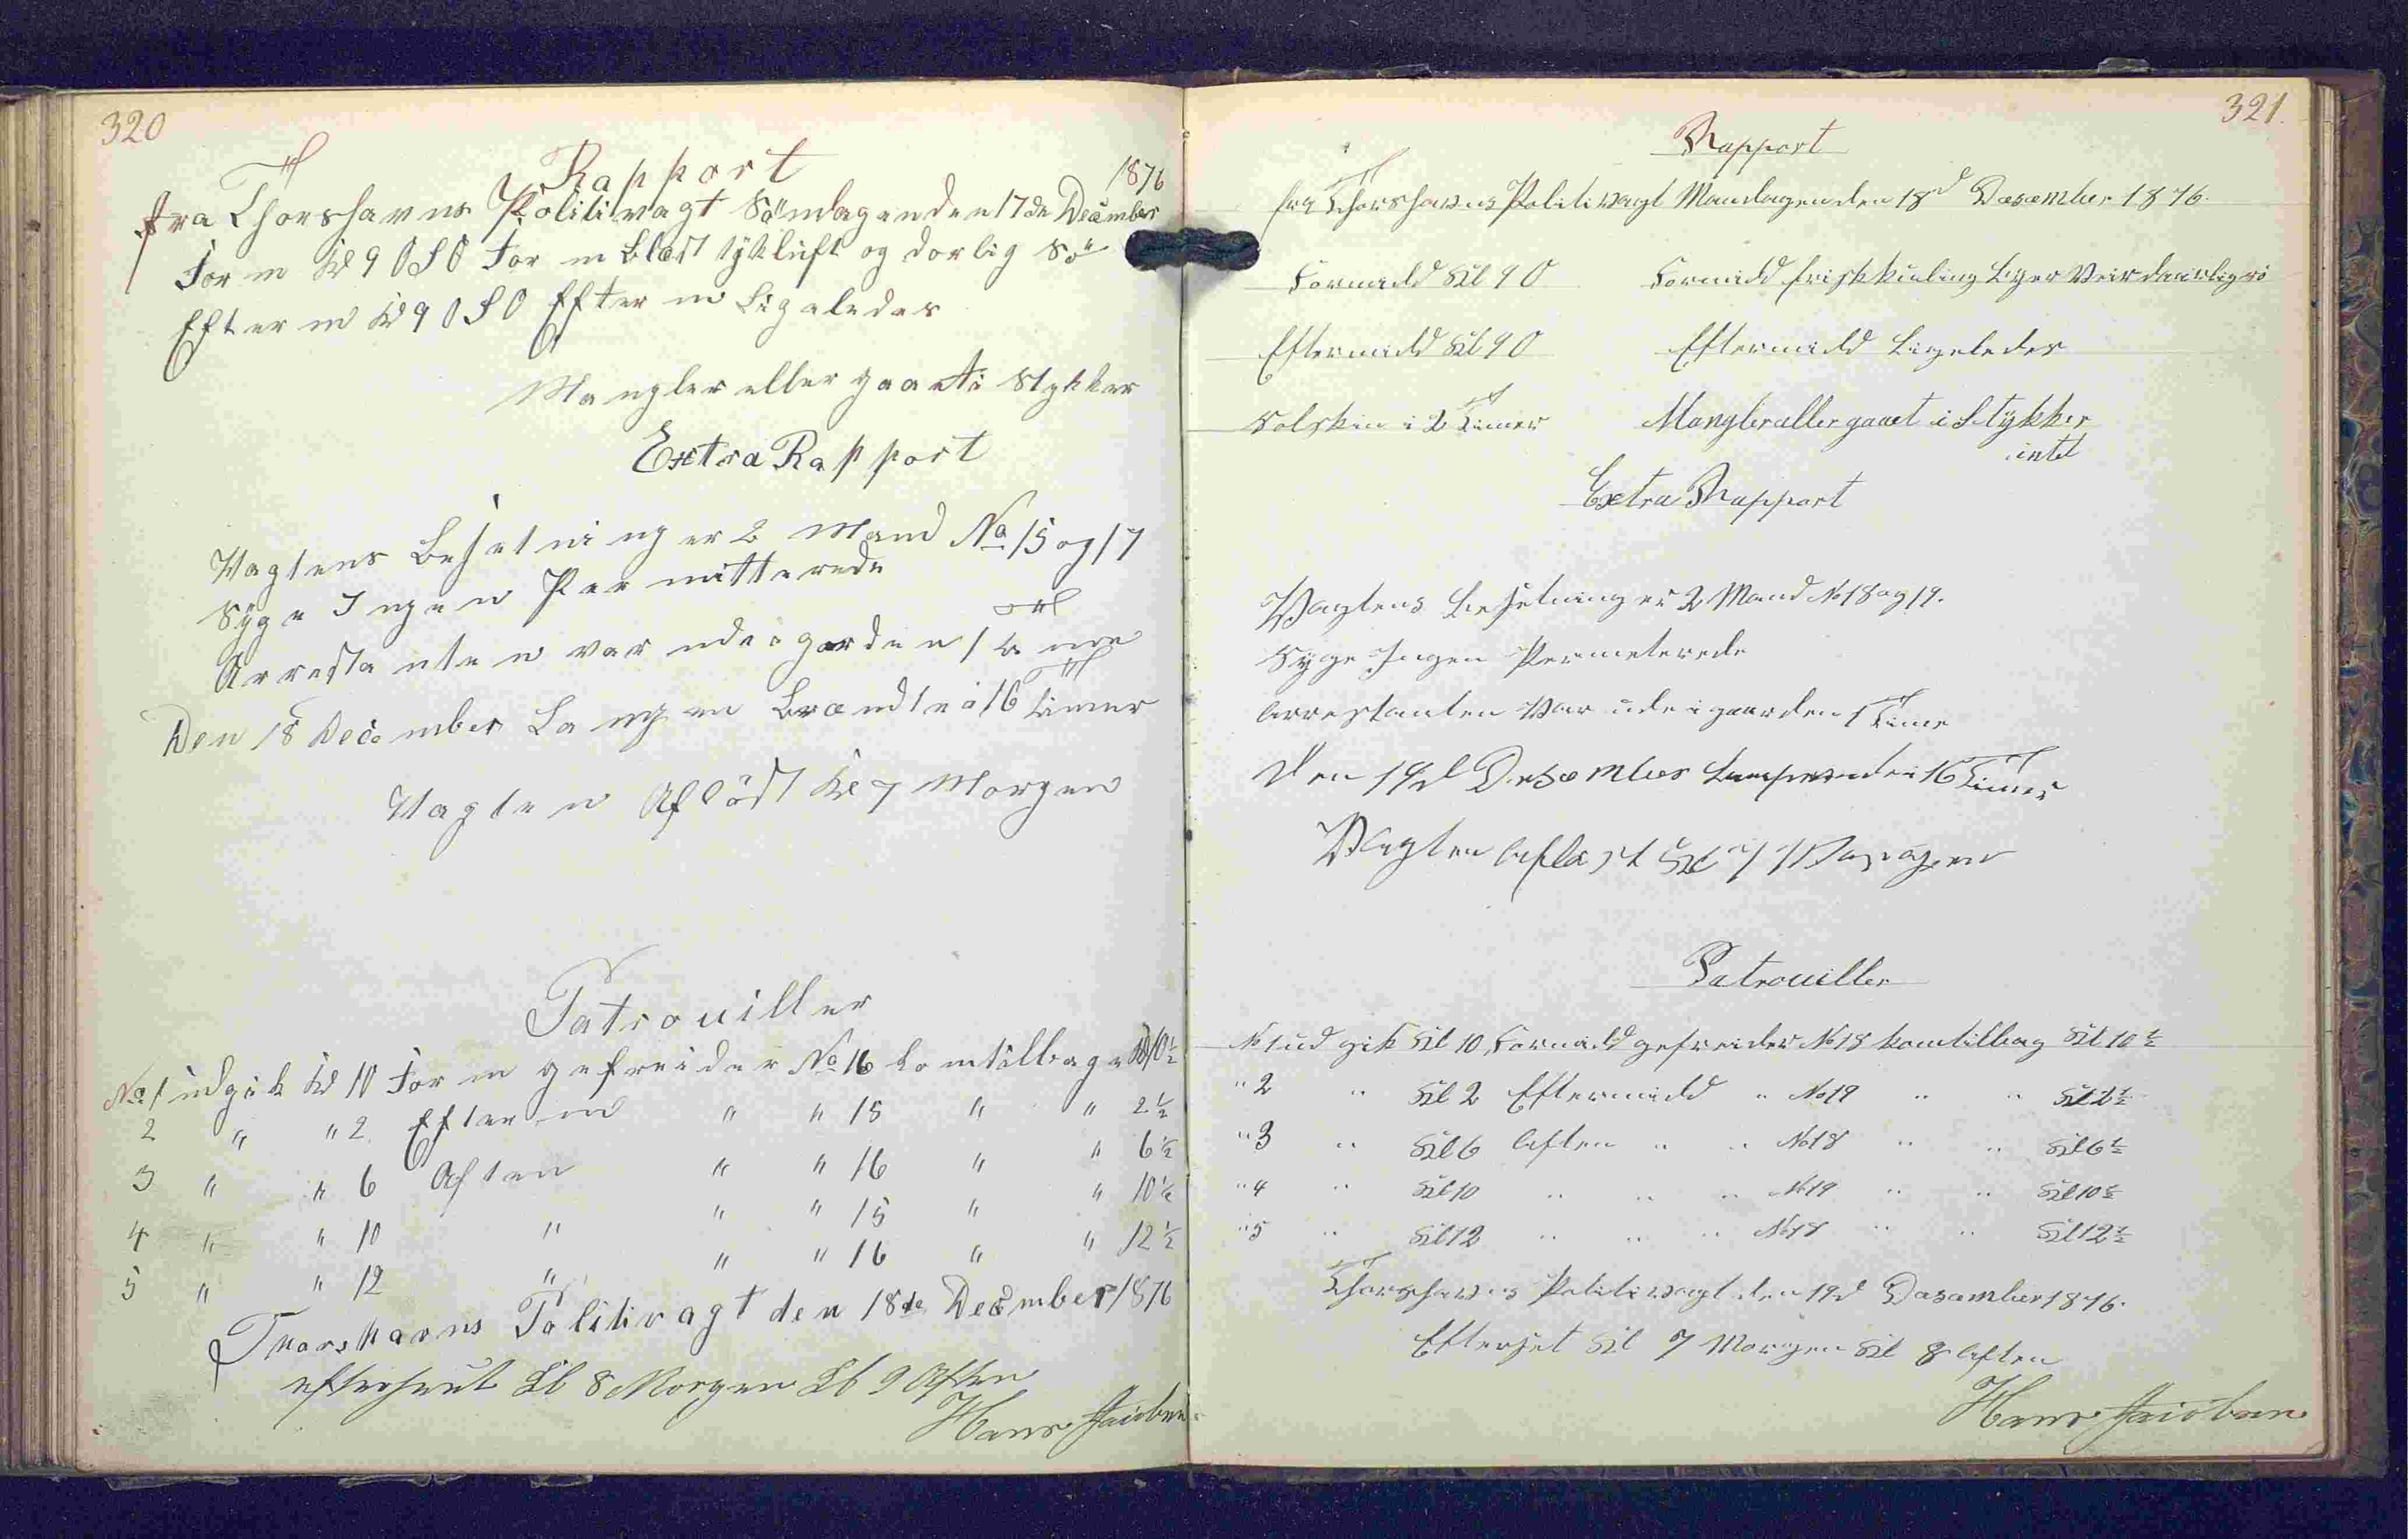 320
Rapport
1876
fra Thorshavns Politivagt Söndagen den 17de December
Form Kl 9 OSO Form Blæst tykluft og dorlig Sö
Efterm Kl 9 OSO Efterm Ligeledes
Mangler eller gaaet i Stykker
Extra Rapport
Vagtens Besetning er 2 Mand No 15 og 17
Syge Ingen Permitterede
Arrestanten var ude i gorden 1 time
Den 18 December Lampen Brændte i 16 Timer
Vagten Aflöst Kl 7 Morgen
Patrouiller
No 1 udgik Kl 10 Form gefreider No 16 kom tilbage Kl 10½
2 " " 2 Efterm " " 15 " " 2½
3 " " 6 Aften " " 16 " " 6½
4 " " 10 " " " 15 " " 10½
5 " " 12 " " " 16 " " 12½
Thorshavns Politivagt den 18de December 1876
efterseet Kl 8 Morgen Kl 9 Aften
Hans Jacobsen
321.
Rapport
fra Thorshavns Politivagt Mandagen den 18d Desember 1876.
Formidd Kl 9 O Formidd frisk kuling Byer Veir daarlig sö
Eftermidd Kl 9 O Eftermidd Ligeledes
Solskin i 2 Timer Mangler eller gaaet i Stykker
intet
Extra Rapport
Vagtens Besetning er 2 Mand No 18 og 19.
Syge Ingen Permeterede
Arrestanten Var ude i gaarden 1 Time
Den 19d Desember Lampen i 16 Timer
Vagten Aflæst Kl 7 Morgen
Patrouiller
No 1 ud gik Kl 10 Formidd gefreider No 18 kom tilbag Kl 10½
" 2 " Kl 2 Eftermidd " No 19 " " Kl 2½
" 3 " Kl 6 Aften " " No 18 " " Kl 6½
" 4 " Kl 10 " " " No 19 " " Kl 10½
" 5 " Kl 12 " " " No 18 " " Kl 12½
Thorshavns Politivagt den 19d Desember 1876.
Efterset Kl 7 Morgen Kl 8 Aften
Hans Jacobsen